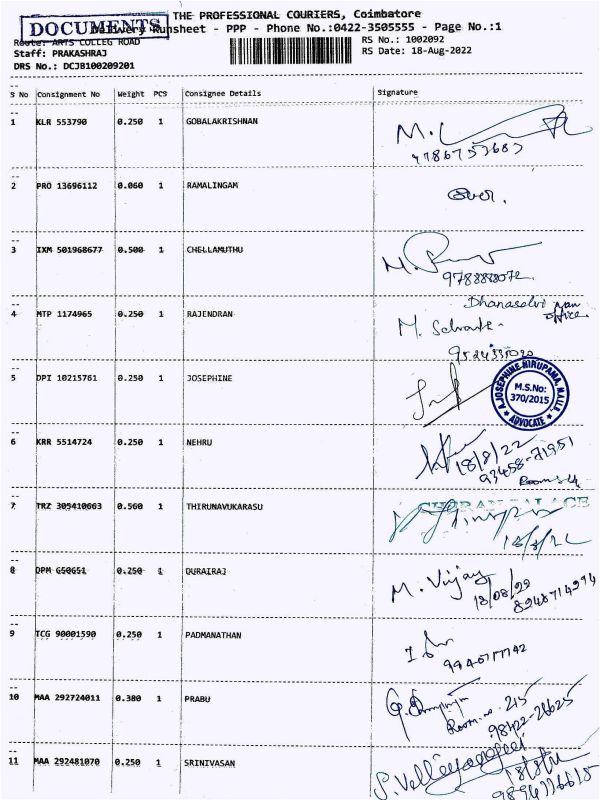 THE PROFESSIONAL COURIERS, Coimbatore
DOCUMENTS
Delivery Runsheet - PPP - Phone No.:0422-3505555 - Page No.:1
Route: ARTS COLLEG ROAD
RS No.: 1002092
Staff: PRAKASHRAJ
RS Date: 18-Aug-2022
DRS No.: DCJB100209201
S No Consignment No Weight PCS Consignee Details Signature
1 KLR 553790 0.250 1 GOBALAKRISHNAN
2 PRO 13696112 0.060 1 RAMALINGAM
3 IXM 501968677 0.500 1 CHELLAMUTHU
Dhanaselvi
office
4 MTP 1174965 0.250 1 RAJENDRAN
M.
5 DPI 10215761 0.250 1 JOSEPHINE
A.JOSEPHINE NIRUPAMA, M.A.LL.B.
M.S.No:
370/2015
ADVOCATE
6 KRR 5514724 0.250 1 NEHRU
18/8/22
93458-71951
7 TRZ 305410603 0.560 1 THIRUNAVUKARASU
PALACE
18/8/22
8 OPM 650651 0.250 1 DURAIRAJ
M. Vijay
18/08/22
8248714294
9 TCG 90001590 0.250 1 PADMANATHAN
10 MAA 292724011 0.380 1 PRABU
Room.no. 215
98422-26625
11 MAA 292481070 0.250 1 SRINIVASAN
18/8/22